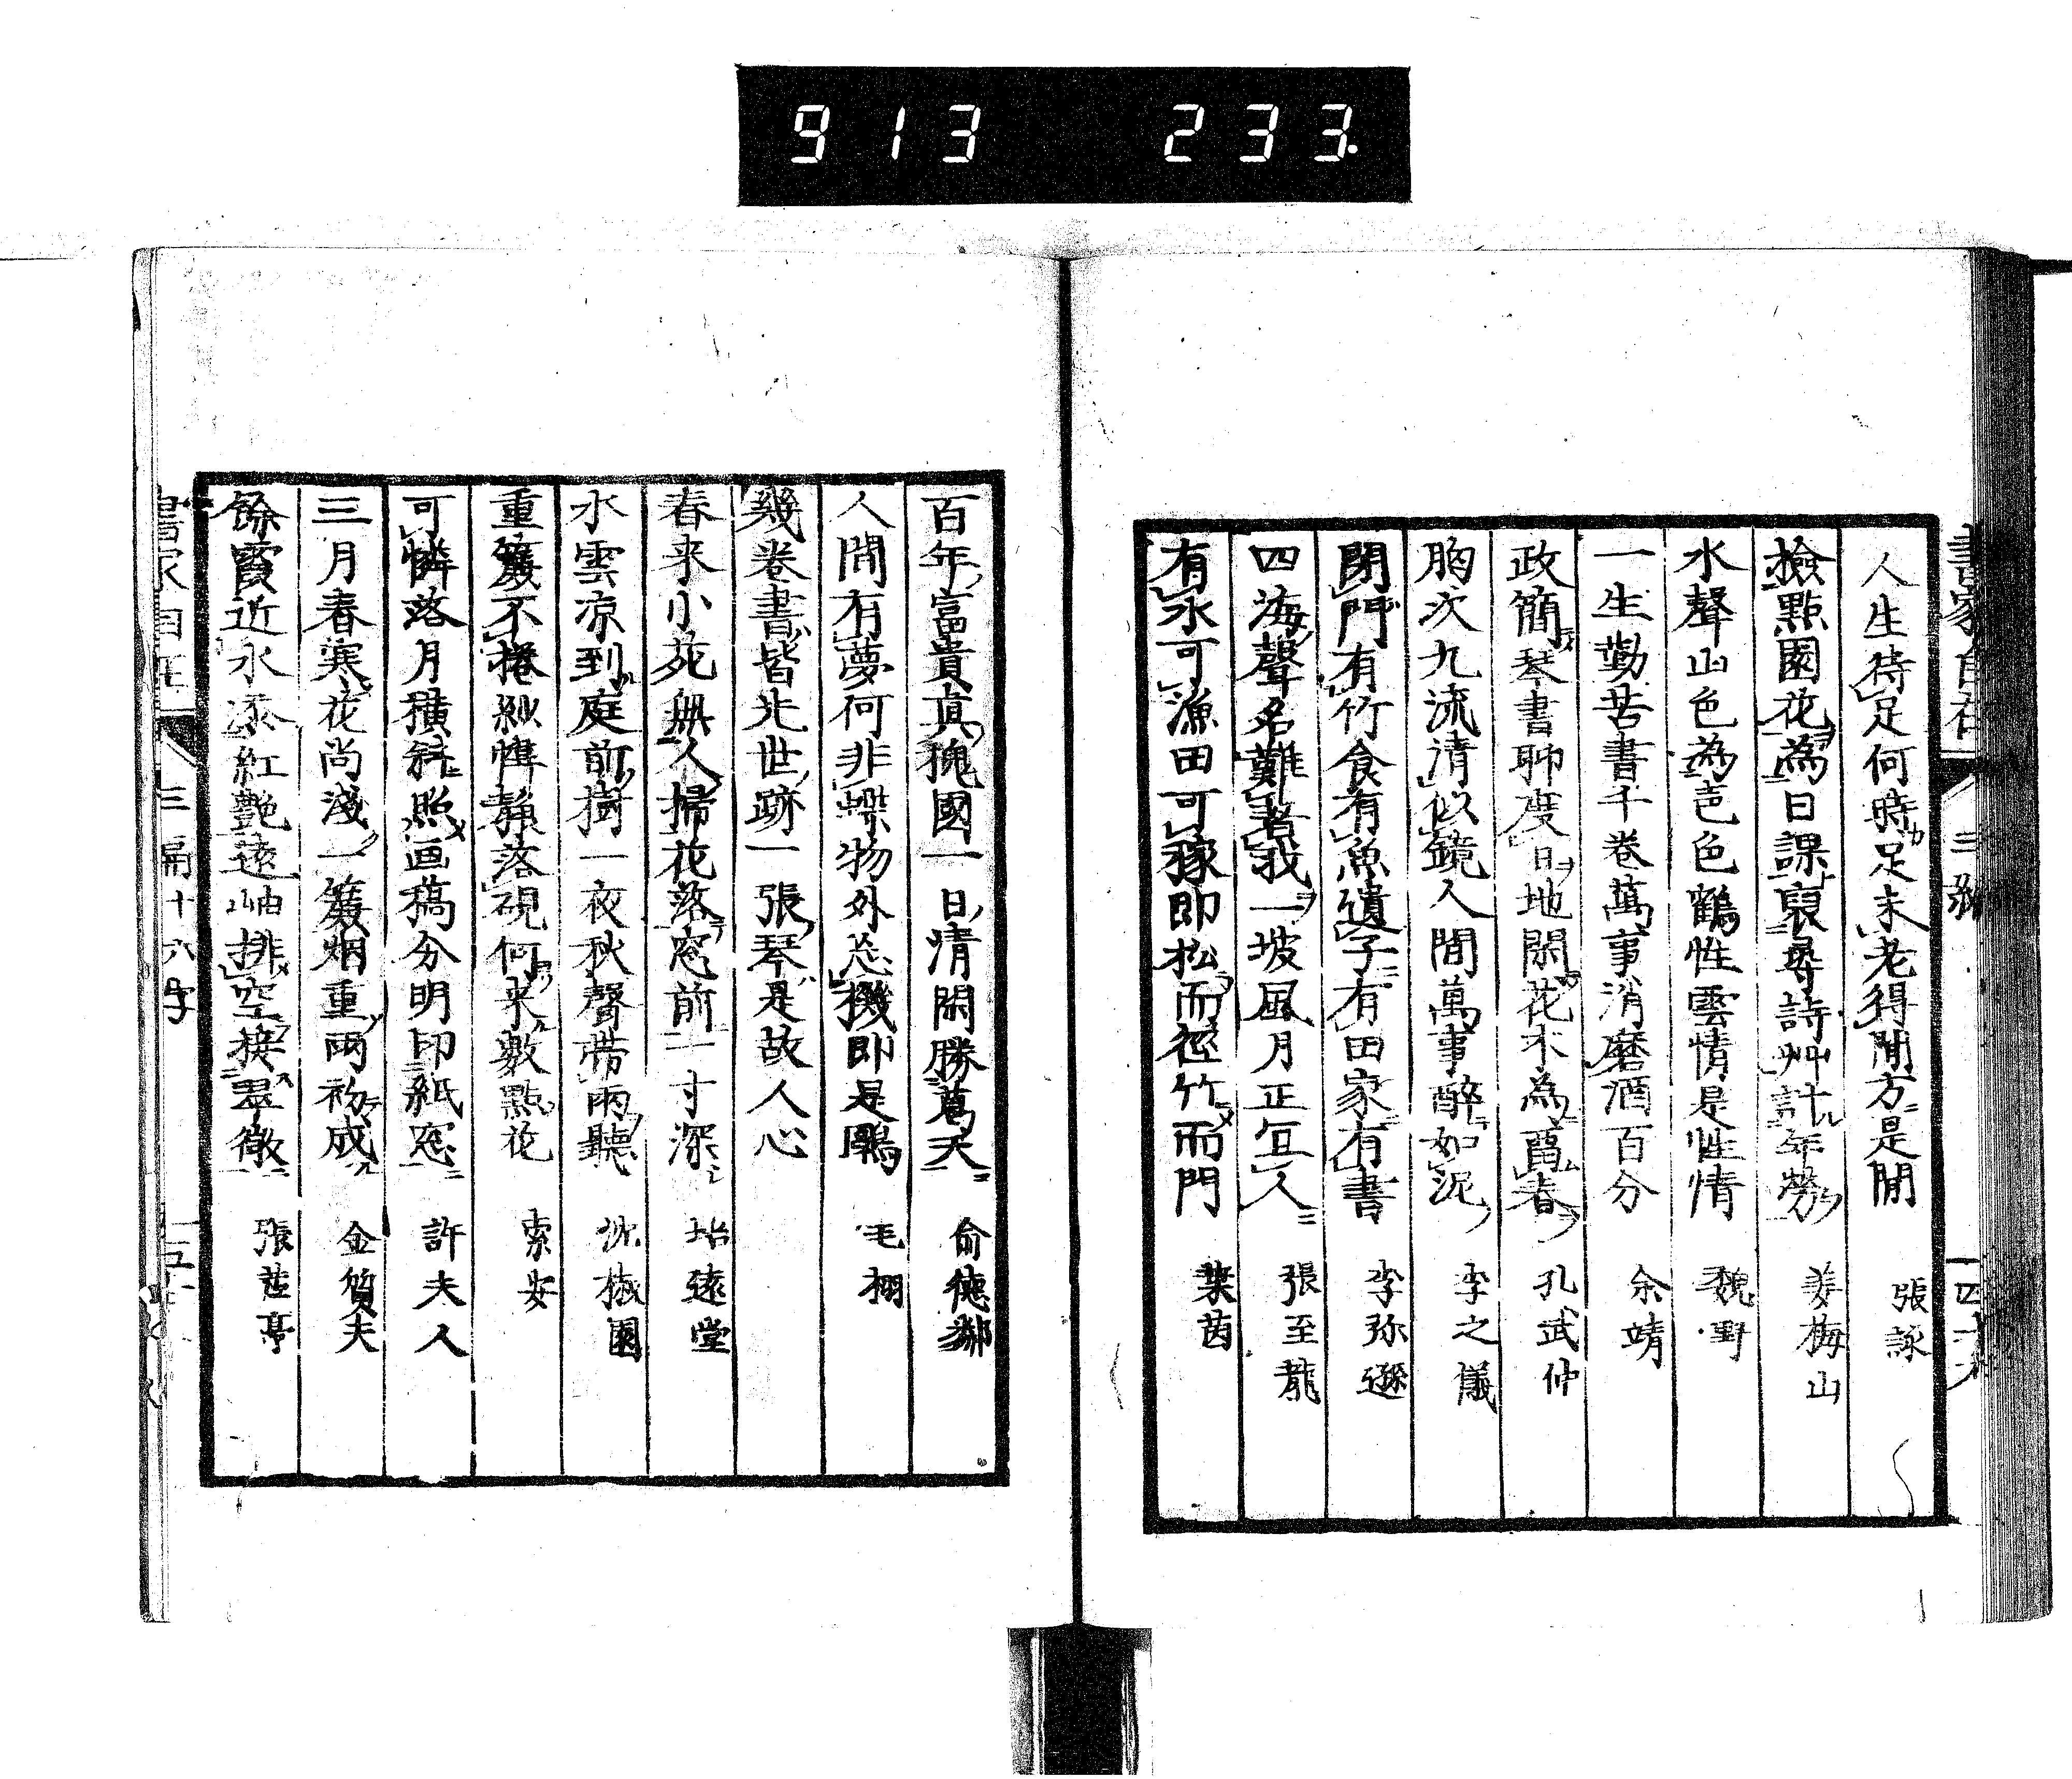 913 233.
人生待足何時足未老得閒方是閒 張詠
撿點園花為日課裒尋詩艸計年勞 姜梅山
水聲山色為声色鶴性雲情是性情 魏野
一生勤苦書千卷萬事消磨酒百分 余靖
政簡琴書聊度日地閑花木為畱春 孔武仲
胸次九流清似鏡人間萬事醉如泥 李之儀
閉門有竹食有魚遺子有田家有書 李弥遜
四海聲名難著我一坡風月正宜人 張至龍
有水可漁田可稼即松而徑竹而門 葉茵
百年富貴真槐國一日清閑勝葛天 俞德鄰
人間有夢何非蝶物外忘機即是鷗 毛栩
幾卷書皆先世跡一張琴是故人心
春来小苑無人掃花落窓前一寸深 坮遠堂
水雲凉到庭前樹一夜秋聲帯雨聽 沈椒園
重簾不捲紗幃静落硯何来數點花 索安
可憐落月橫斜照画稿分明印紙窓 許夫人
三月春寒花尚淺一簾烟重雨初成 金質夫
餘霞近水添紅艶遠岫排空接翠微 張芸亭
三編十六字